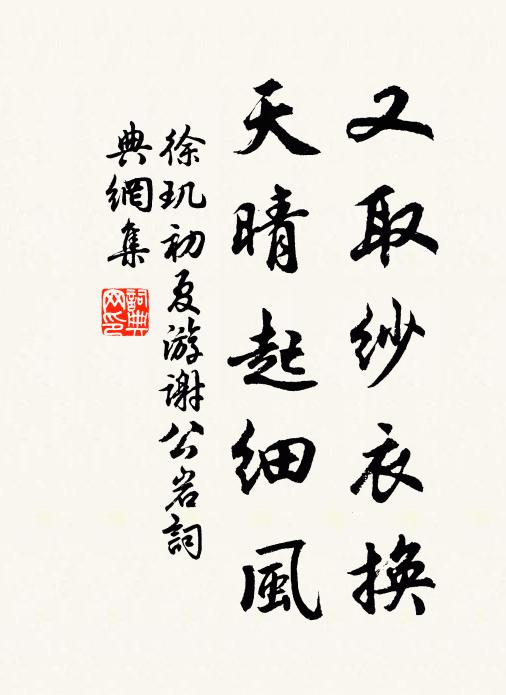 又取紗衣換
天晴起細風
徐玑初夏游谢公岩詞
典網集
詞典
网印